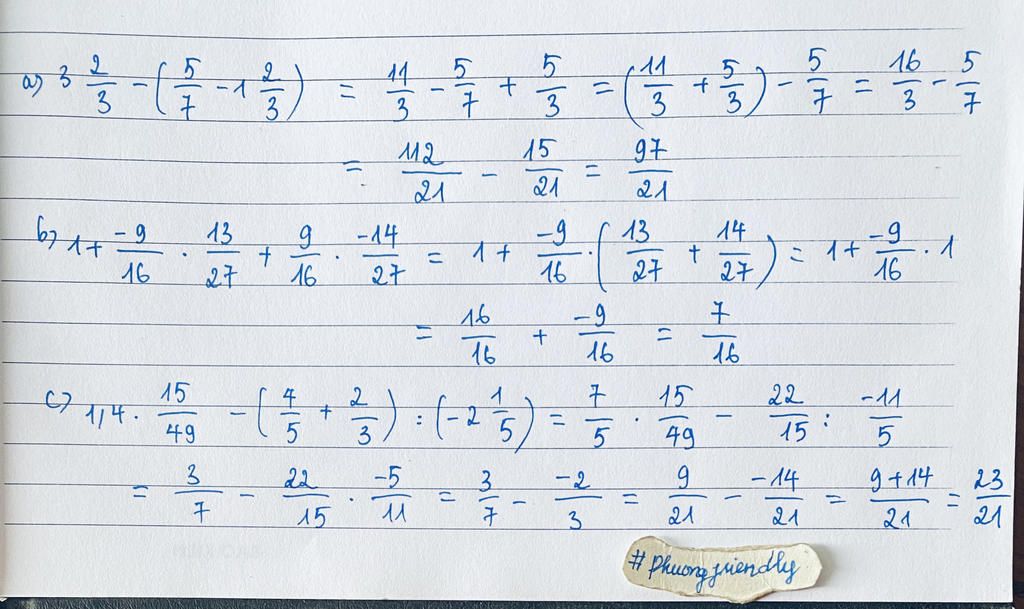 a) 3 2/3 - (5/7 - 1 2/3) = 11/3 - 5/7 + 5/3 = (11/3 + 5/3) - 5/7 = 16/3 - 5/7
= 112/21 - 15/21 = 97/21
b) 1 + -9/16 . 13/27 + 9/16 . -14/27 = 1 + -9/16 . (13/27 + 14/27) = 1 + -9/16 . 1
= 16/16 + -9/16 = 7/16
c) 1,4 . 15/49 - (4/5 + 2/3) : (-2 1/5) = 7/5 . 15/49 - 22/15 : -11/5
= 3/7 - 22/15 . -5/11 = 3/7 - -2/3 = 9/21 - -14/21 = 9+14/21 = 23/21
#phuongfriendly